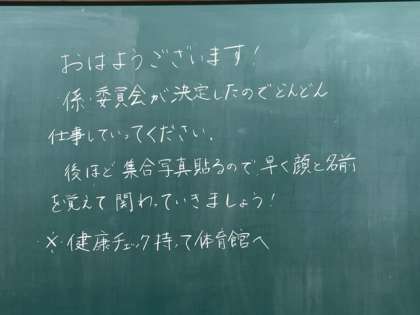 おはようございます!
係・委員会が決定したのでどんどん
仕事していってください.
後ほど集合写真貼るので早く顔と名前
を覚えて関わっていきましょう!
※健康チェック持って体育館へ